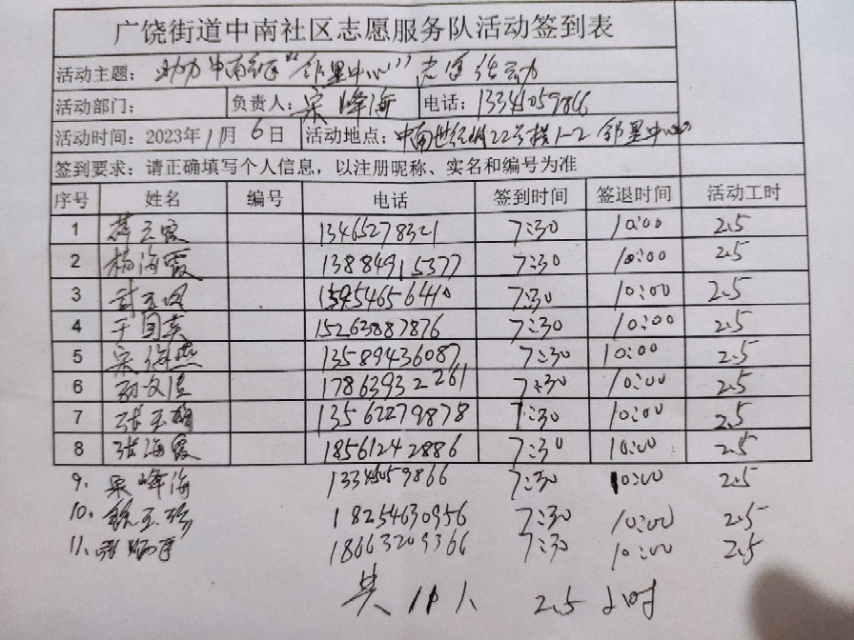 广饶街道中南社区志愿服务队活动签到表
活动主题： 助力中南社区"邻里中心" 志愿活动
活动部门： 负责人：宋峰海 电话：13345059866
活动时间：2023年1月6日 活动地点：中南世纪城22号楼1-2 邻里中心
签到要求：请正确填写个人信息，以注册昵称、实名和编号为准
序号 姓名 编号 电话 签到时间 签退时间 活动工时
1 13465278321 7:30 10:00 2.5
2 杨海霞 13884915377 7:30 10:00 2.5
3 15954656410 7:30 10:00 2.5
4 15263887876 7:30 10:00 2.5
5 宋海燕 13589436087 7:30 10:00 2.5
6 17863932261 7:30 10:00 2.5
7 13562279878 7:30 10:00 2.5
8 张海霞 18561242886 7:30 10:00 2.5
9. 宋峰海 13345059866 7:30 10:00 2.5
10. 18254630956 7:30 10:00 2.5
11. 18663209366 7:30 10:00 2.5
共11人 2.5小时